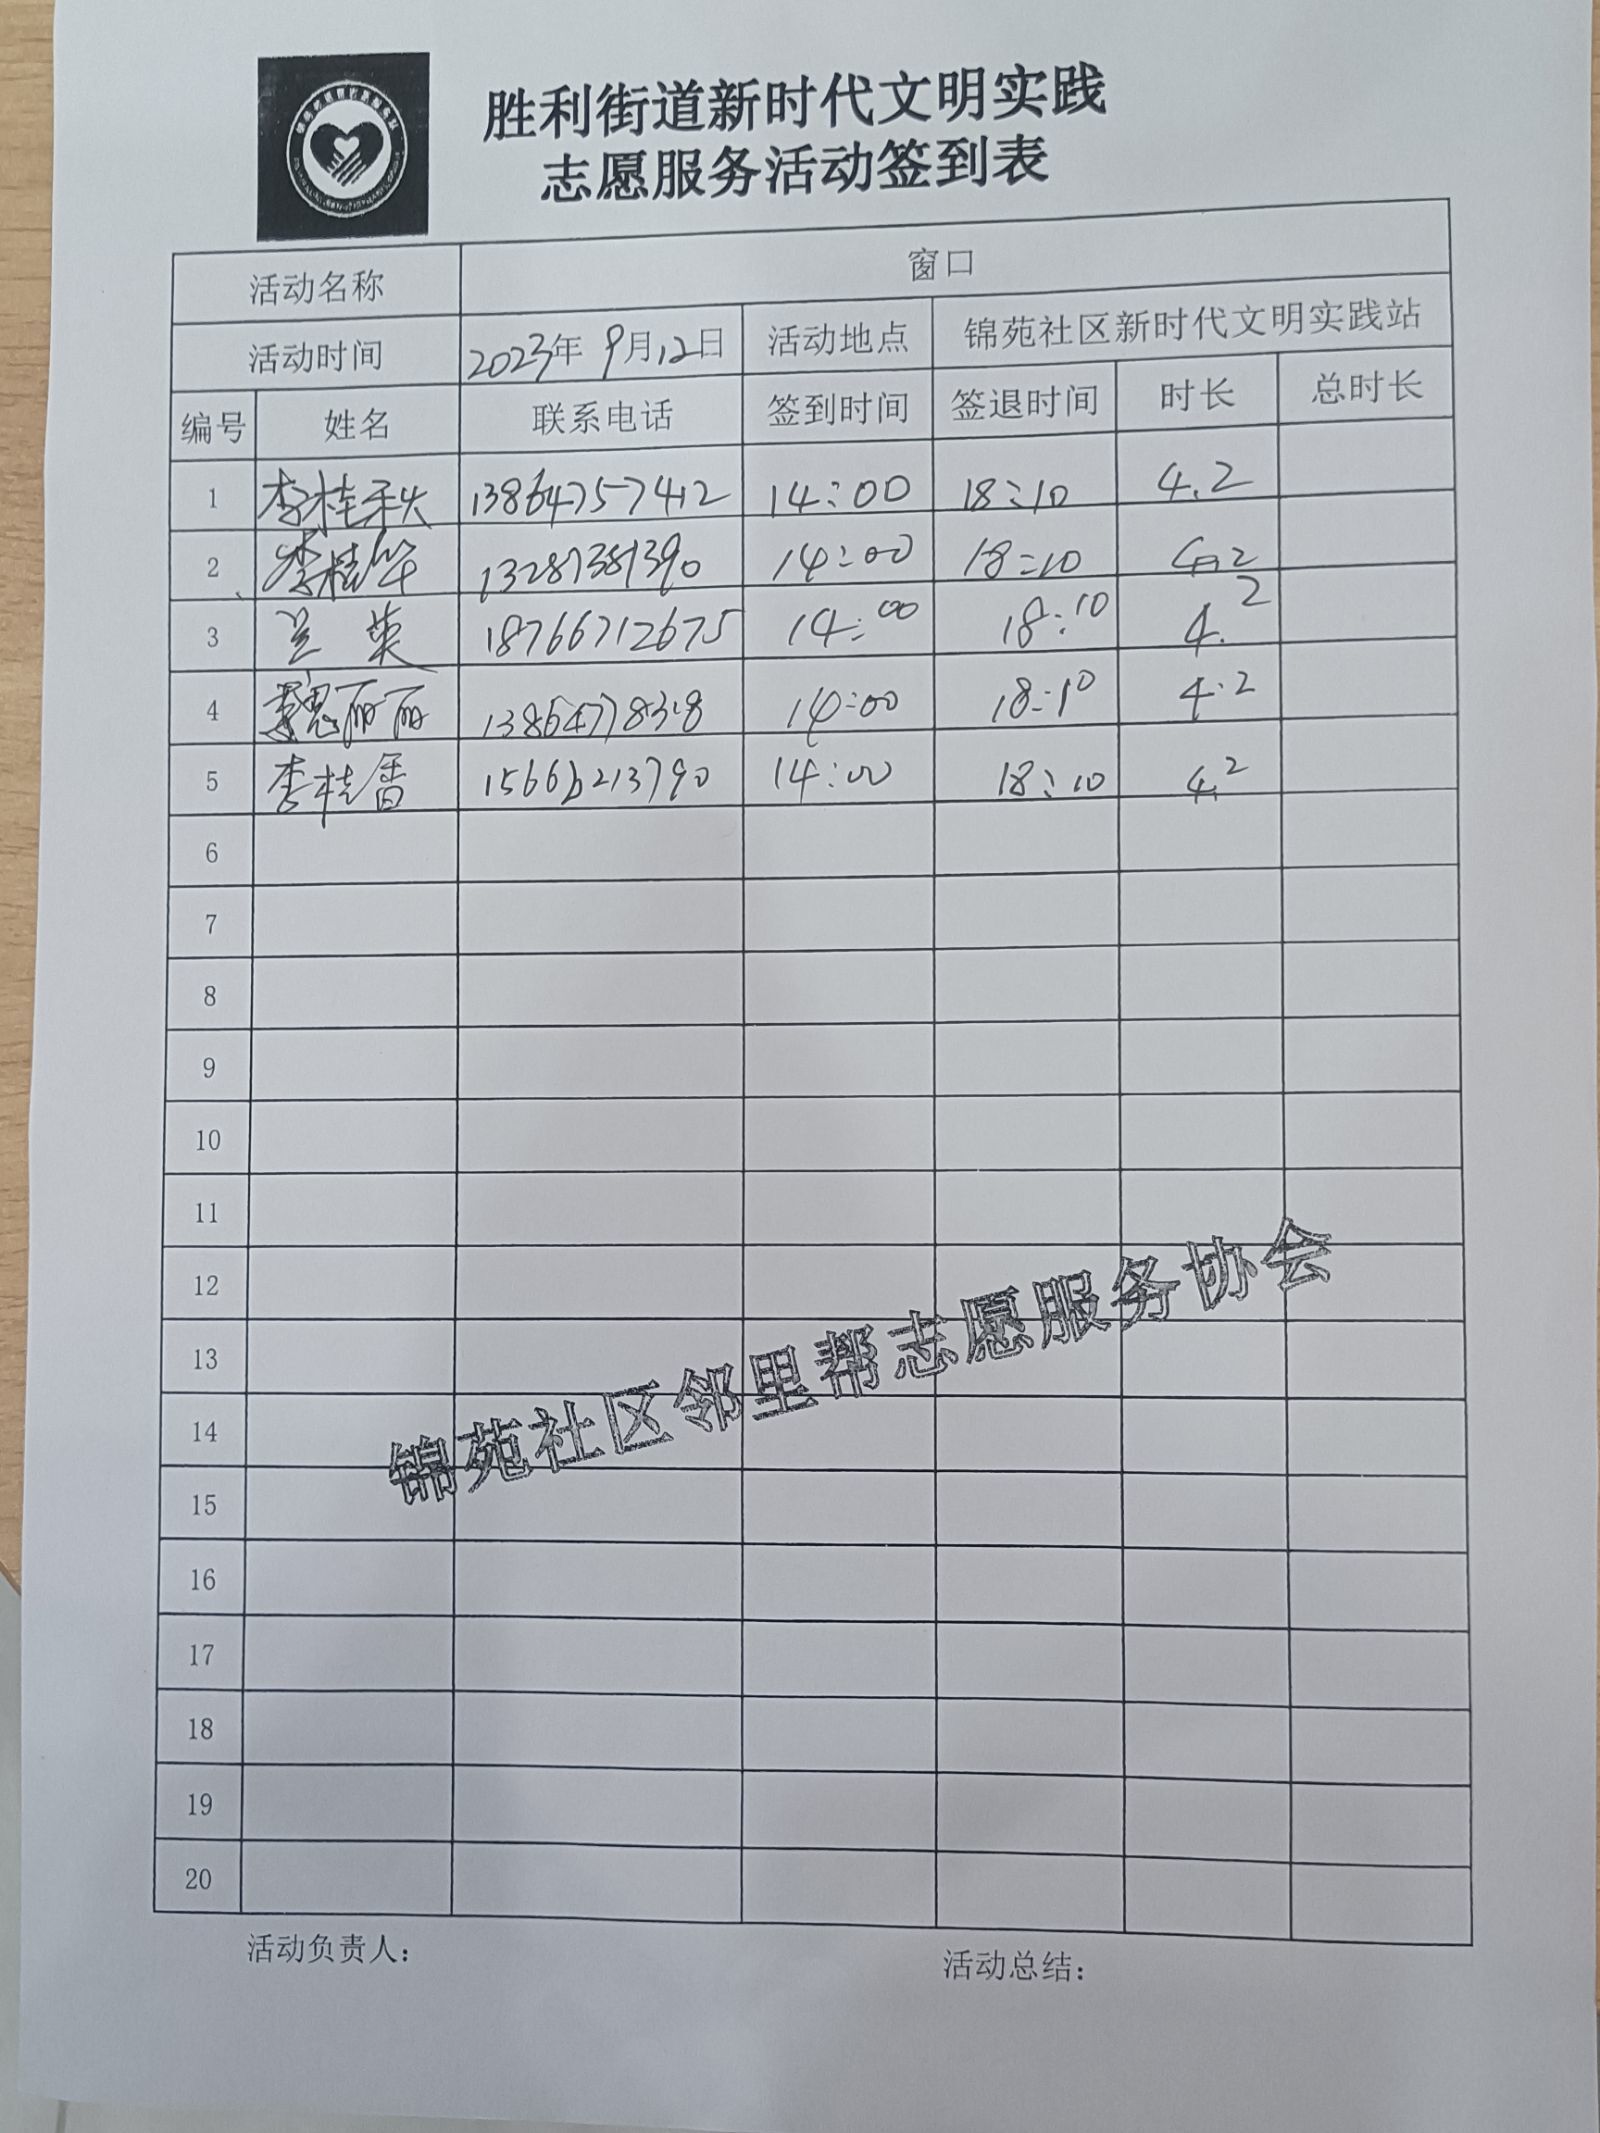 胜利街道新时代文明实践
志愿服务活动签到表
活动名称 窗口
活动时间 2023年 9月12日 活动地点 锦苑社区新时代文明实践站
编号 姓名 联系电话 签到时间 签退时间 时长 总时长
1 李桂秋 13864757412 14:00 18:10 4.2
2 李桂华 13287381390 14:00 18:10 4.2
3 兰英 18766712675 14:00 18:10 4.2
4 魏丽丽 13864778318 14:00 18:10 4.2
5 李桂香 15666213790 14:00 18:10 4.2
6
7
8
9
10
11
12
13
14
15
16
17
18
19
20
锦苑社区邻里帮志愿服务协会
活动负责人： 活动总结：